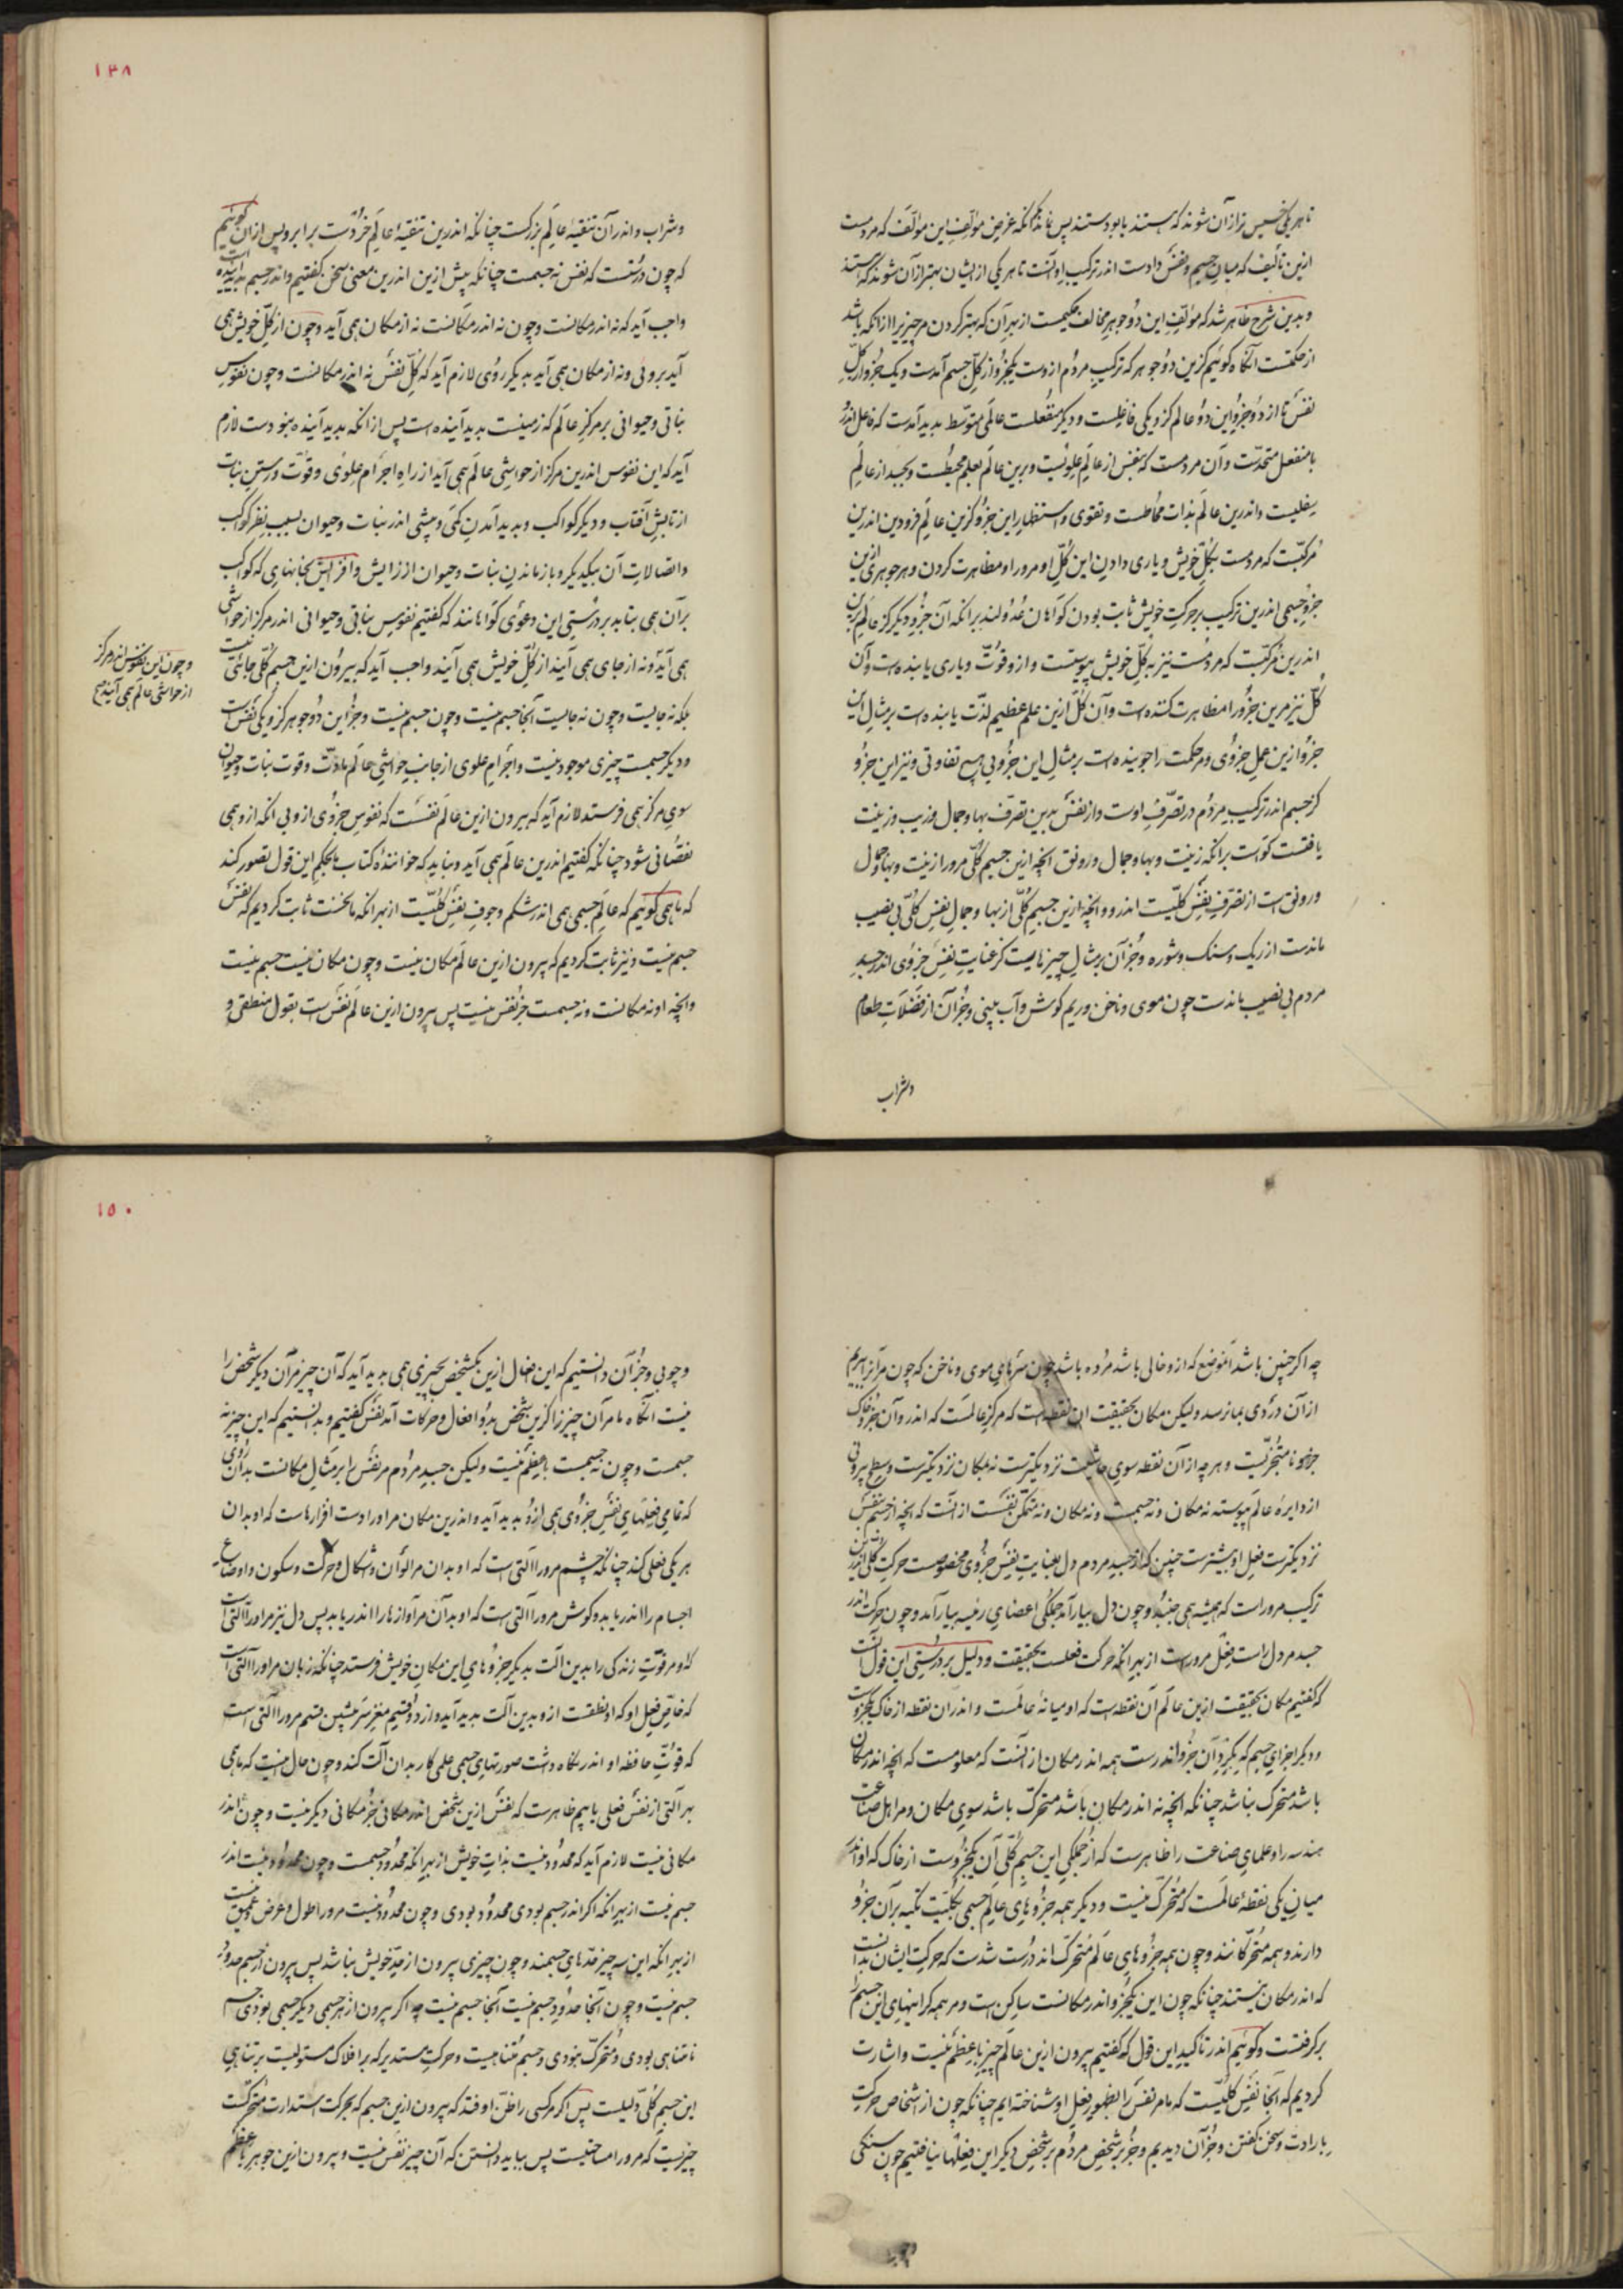 تا هر یکی خسیس تر از آن شوند که هستند یا بودستند پس نماند مگر آنکه غرض مؤلف این مؤلف که مردمست
ازین تألیف که میان جسم و نفس دادست اندر ترکیب او آنست تا هر یکی از ایشان بهتر از آن شوند که هستند
و بدین شرح ظاهر شد که مؤلف این دو جوهر مخالف حکیمست از بهر آن که بهتر کردن مر چیزیرا از آنکه باشد
از حکمتست آنگاه گوئیم کزین دو جوهر که ترکیب مردم ازوست یکجزو از کل جسم آمدست و یک جزو از کل
نفس تا از دو جزو این دو عالم کزو یکی فاعلست و دیگر منفعلست عالمی متوسط بدید آمدست که فاعل اندرو
با منفعل متحدست و آن مردمست که بنفس از عالم علویست و برین عالم بعلم محیطست و بجسد از عالم
سفلیست و اندرین عالم بذات محاطست و تقوی و استظهار این جزو کزین عالم فرودین اندرین
مرکبست که مردمست بکل خویش و یاری دادن این کل او مرورا و مظاهرت کردن و هر جوهری ازین
جزو جسمی اندرین ترکیب بر حرکت خویش ثابت بودن گواهان عدولند برانکه آن جزو دیگر کز عالم برین
اندرین مرکبست که مردمست نیز بکل خویش پیوستست و ازو قوت و یاری یابنده است و آن
کل نیز مرین جزو را مظاهرت کننده است و آن کل ازین علم عظیم لذت یابنده است بر مثال این
جزو ازین عمل جزوی و مر حکمت را جوینده است بر مثال این جزو بی هیچ تفاوتی و نیز این جزو
کز جسم اندر ترکیب مردم در تصرف اوست و از نفس بدین تصرف بها و جمال و زیب و زینت
یافتست گواست برانکه زینت و بها و جمال و رونق آنچه ازین جسم کلی مرورا زینت و بها و جمال
و رونق است از تصرف نفس کلیست اندرو و آنچه ازین جسم کلی از بها و جمال نفس کلی بی نصیب
ماندست از ریگ و سنگ و شوره و جز آن بر مثال چیزهاییست کز عنایت نفس جزوی اندر جسد
مردم بی نصیب ماندست چون موی و ناخن و ریم گوش و آب بینی و جز آن از فضلات طعام
و شراب
۱۴۸
و شراب و اندر آن تنقیهٔ عالم بزرگست چنانکه اندرین تنقیهٔ عالم خردست برابر و پس ازان گوئیم
که چون درستست که نفس نه جسمست چنانکه پیش ازین اندرین معنی سخن گفتیم و اندر جسم پدید آینده است
واجب آید که نه اندر مکانست و چون نه اندر مکانست نه از مکان همی آید و چون از کل خویش همی
آید بروی و نه از مکان همی آید بدیگر روی لازم آید که کل نفس نه اندر مکانست و چون نفوس
نباتی و حیوانی بر مرکز عالم که زمینست بدید آینده است پس ازانکه بدید آینده نبودست لازم
آید که این نفوس اندرین مرکز از حواشی عالم همی آید از راه اجرام علوی و قوت و رستن نبات
از تابش آفتاب و دیگر کواکب و بدید آمدن کمی و بیشی اندر نبات و حیوان بسبب نظر کواکب
و اتصالات آن بیکدیگر و باز ماندن نبات و حیوان از زایش و افزایش بجانهای که کواکب
برآن همی بتابد بر درستی این دعوی گواهانند که گفتیم نفوس نباتی و حیوانی اندر مرکز از حواشی
همی آید و نه از جای همی آیند از کل خویش همی آیند واجب آید که بیرون ازین جسم کلی جائی نیست
بلکه نه جایست و چون نه جایست آنجا جسم نیست و چون جسم نیست و جز این دو جوهر کزو یکی نفس است
و دیگر جسمست چیزی موجود نیست و اجرام علوی از جانب حواشی عالم مادت و قوت نبات و حیوان
سوی مرکز همی فرستد لازم آید که بیرون ازین عالم نفسست که نفوس جزوی ازو بی آنکه ازو همی
نقصانی شود چنانکه گفتیم اندرین عالم همی آید و نباید که خوانندهٔ کتاب ما بحکم این قول تصور کند
که ما همی گوئیم که عالم جسمی همی اندر شکم و جوف نفس کلیست از بهر آنکه ما نخست ثابت کردیم که نفس
جسم نیست و نیز ثابت کردیم که بیرون ازین عالم مکان نیست و چون مکان نیست جسم نیست
و آنچه او نه مکانست و نه جسمست جز نفس نیست پس بیرون ازین عالم نفس است بقول منطقی و
و چون این نفوس اندر مرکز
از حواشی عالم همی آیند صح
چه اگر چنین باشد آنموضع که ازو خالی باشد مرده باشد چون سرهای موی و ناخن که چون مرآنرا ببریم
از آن دردی بما نرسد ولیکن مکان بحقیقت آن نقطه است که مرکز عالمست که اندرو آن جزو خاک
جزو نامتجزیست و هر چه از آن نقطه سوی حاشیت نزدیکترست نه بمکان نزدیکترست و سطح بیرونی
از دایرهٔ عالم پیوسته نه مکان و نه جسمست و نه مکان و نه متمکن نفسست ازانست که آنچه از جسم بنفس
نزدیکترست فعل او بیشترست چنین که از جسد مردم دل بعنایت نفس جزوی مخصوصست حرکت کلی اندرین
ترکیب مروراست که همیشه همی جنبد و چون دل بیارامد جملگی اعضای رئیسه بیارامد و چون حرکت اندر
جسد مر دل راست فعل مروراست از بهر آنکه حرکت فعلست بحقیقت و دلیل بر درستی این قول آنست
که گفتیم مکان بحقیقت ازین عالم آن نقطه است که او میانهٔ عالمست و اندر آن نقطه از خاک یکجزوست
و دیگر اجزای جسم که بگرد آن جزو اندرست همه اندر مکان از آنست که معلومست که آنچه اندر مکان
باشد متحرک نباشد چنانکه آنچه نه اندر مکان باشد متحرک باشد سوی مکان و مر اهل صناعت
هندسه را و علمای صناعت را ظاهرست که از جملگی این جسم کلی آن یکجزوست از خاک که او اندر
میان یکی نقطهٔ عالمست که متحرک نیست و دیگر همه جزوهای عالم جسمی بکلیت تکیه برآن جزو
دارند و همه متحرکانند و چون همه جزوهای عالم متحرک اند درست شدست که حرکت ایشان بدانست
که اندر مکان نیستند چنانکه چون این یکجزو اندر مکانست ساکن است و مر همه کرانهای این جسم را
بر گرفتست و گوئیم اندر تاکید این قول که گفتیم بیرون ازین عالم چیز با عظم نیست و اشارت
کردیم که آنجا نفس کلیست که ما مر نفس را بظهور فعل او شناخته ایم چنانکه چون از اشخاص حرکت
بارادت و سخن گفتن و جز آن دیدیم و جز بر شخص مردم بر شخص دیگر این فعلها نیافتیم چون سنگی
۱۵۰
و چوبی و جز آن دانستیم که این افعال ازین یکشخص بچیزی همی بدید آید که آن چیز مرآن دیگر شخص را
نیست آنگاه ما مر آن چیز را کزین شخص بدو افعال و حرکات آمد نفس گفتیم و بدانستیم که این چیز نه
جسمست و چون نه جسمست با عظم نیست ولیکن جسد مردم مر نفس را بر مثال مکانست بدان روی
که تمامی فعلهای نفس جزوی همی ازو بدید آید و اندرین مکان مر اورا دست افزارهاست که او بدان
هر یکی فعلی کند چنانکه چشم مرورا آلتی است که او بدان مر الوان و اشکال و حرکت و سکون و اوضاع
اجسام را اندر یابد و گوش مرورا آلتی است که او بدآن مر آوازها را اندر یابد پس دل نیز مراورا آلتی است
که او مر قوت زندگی را بدین آلت بدیگر جزوهای این مکان خویش فرستد چنانکه زبان مراورا آلتی است
که خاص فعل او که او نطقست ازو بدین آلت بدید آید و از دو قسیم مغز سر پیشین قسم مرورا آلتی است
که قوت حافظه او اندر نگاه داشت صورتهای جسمی علمی کار بدان آلت کند و چون حال اینست که ما همی
بهر آلتی از نفس فعلی یابیم ظاهرست که نفس ازین شخص اندر مکانی جز مکانی دیگر نیست و چون اندر
مکانی نیست لازم آید که محدود نیست بذات خویش از بهر آنکه محدود جسمست و چون محدود نیست اندر
جسم نیست از بهر آنکه اگر اندر جسم بودی محدود بودی و چون محدود نیست مرورا طول و عرض و عمق نیست
از بهر آنکه این سه چیز حدهای جسمند و چون چیزی بیرون از حد خویش نباشد پس بیرون از جسم حدود
جسم نیست و چون آنجا حدود جسم نیست آنجا جسم نیست چه اگر بیرون از هر جسمی دیگر جسمی بودی جسم
نامتناهی بودی و متحرک نبودی و جسم متناهیست و حرکت مستدیر که بر افلاک مستولیست بر تناهی
این جسم کلی دلیلست پس اگر مر کسی را ظن اوفتد که بیرون ازین جسم که بحرکت استدارت متحرکست
چیزیست که مرورا مساحتیست پس بباید دانستن که آن چیز نفس نیست و بیرون ازین جوهر با عظم